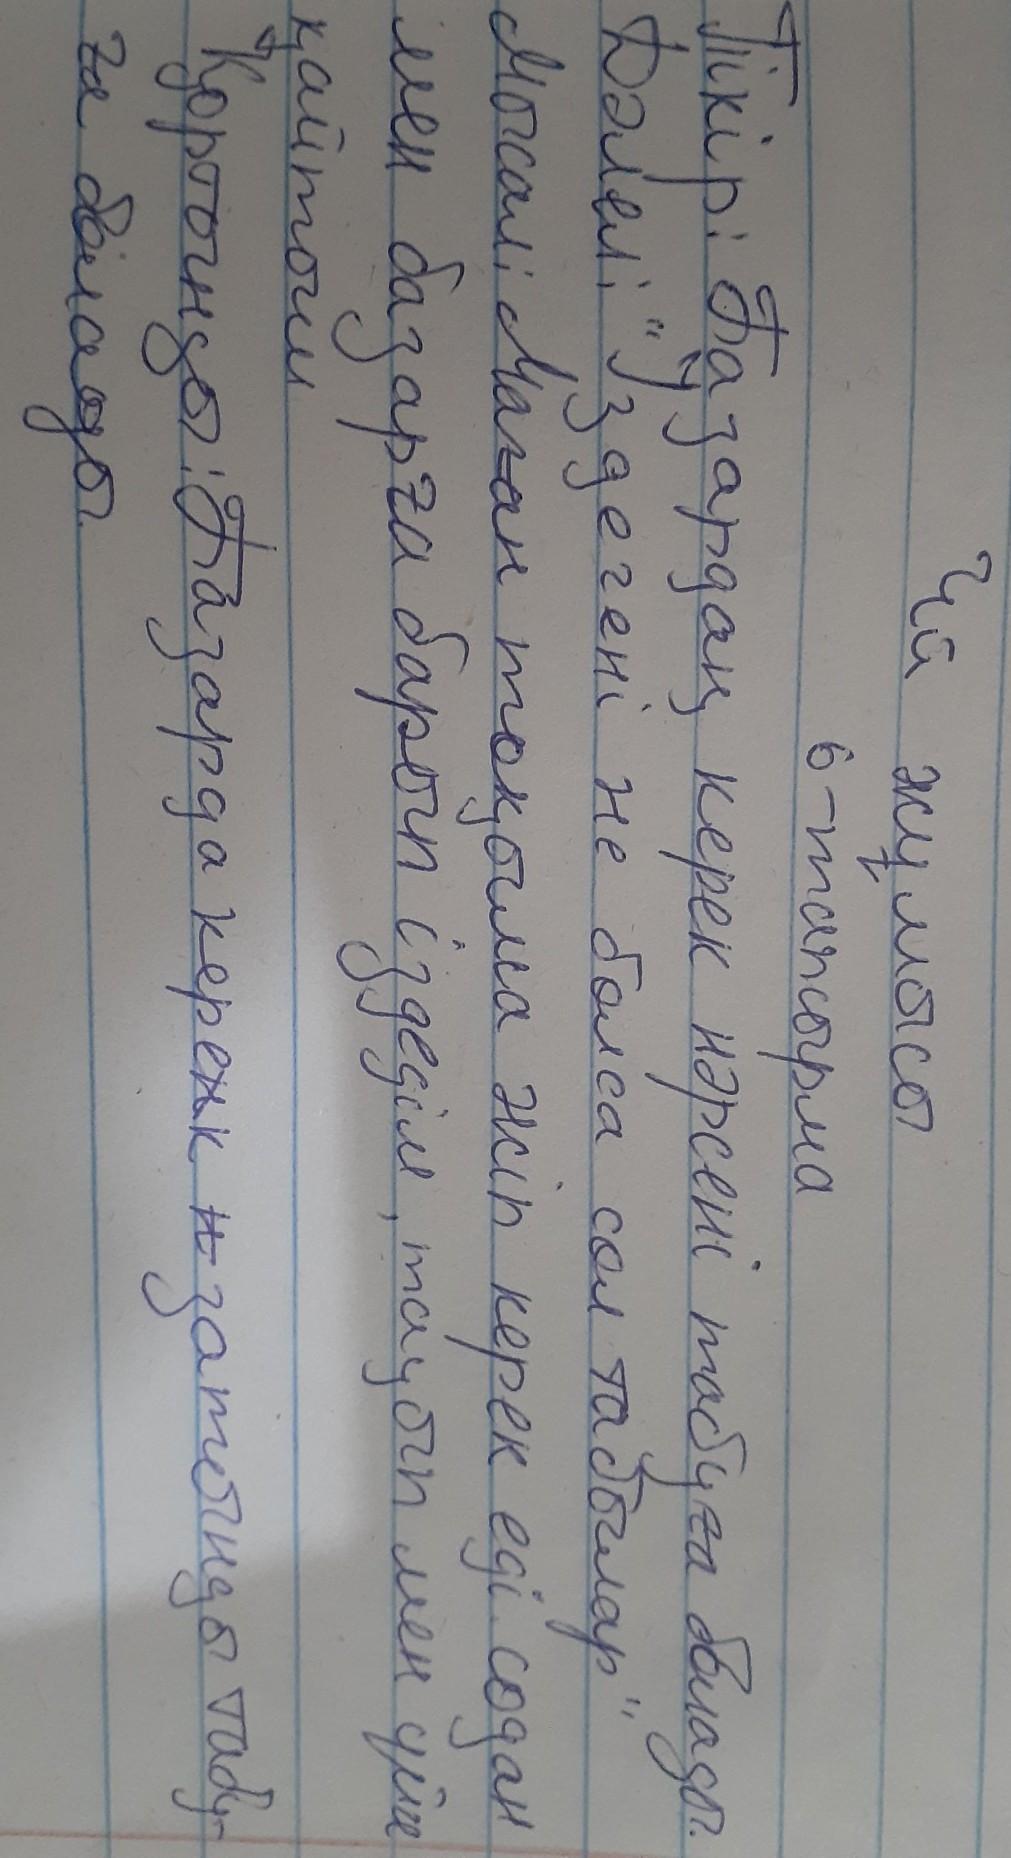 Үй жұмысы
6-тапсырма
Пікір: Базардаң керек нәрсені табуға болады.
Дәлел: "Үздегені не болса сол табылар".
Мысал: Маған тоқыма жіп керек еді содан
мен базарға барып іздедім, тауып мен үйге
қайттым
Қорытынды: Базарда керек затынды табу-
ға болады.